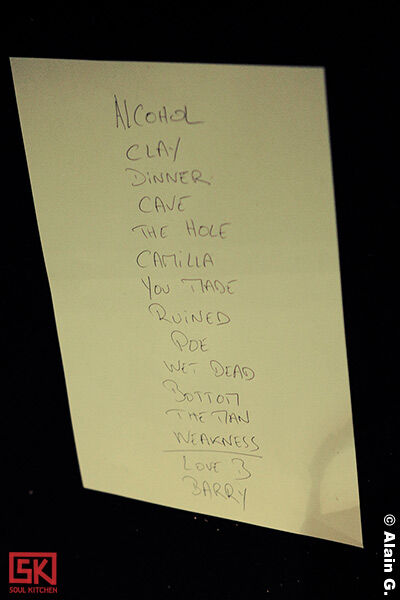 ALCOHOL
CLAY
DINNER
CAVE
THE HOLE
CAMILLA
YOU MADE
RUINED
POE
WET DEAD
BOTTOM
THE MAN
WEAKNESS
LOVE B
BARRY
SK
SOUL KITCHEN
© Alain G.